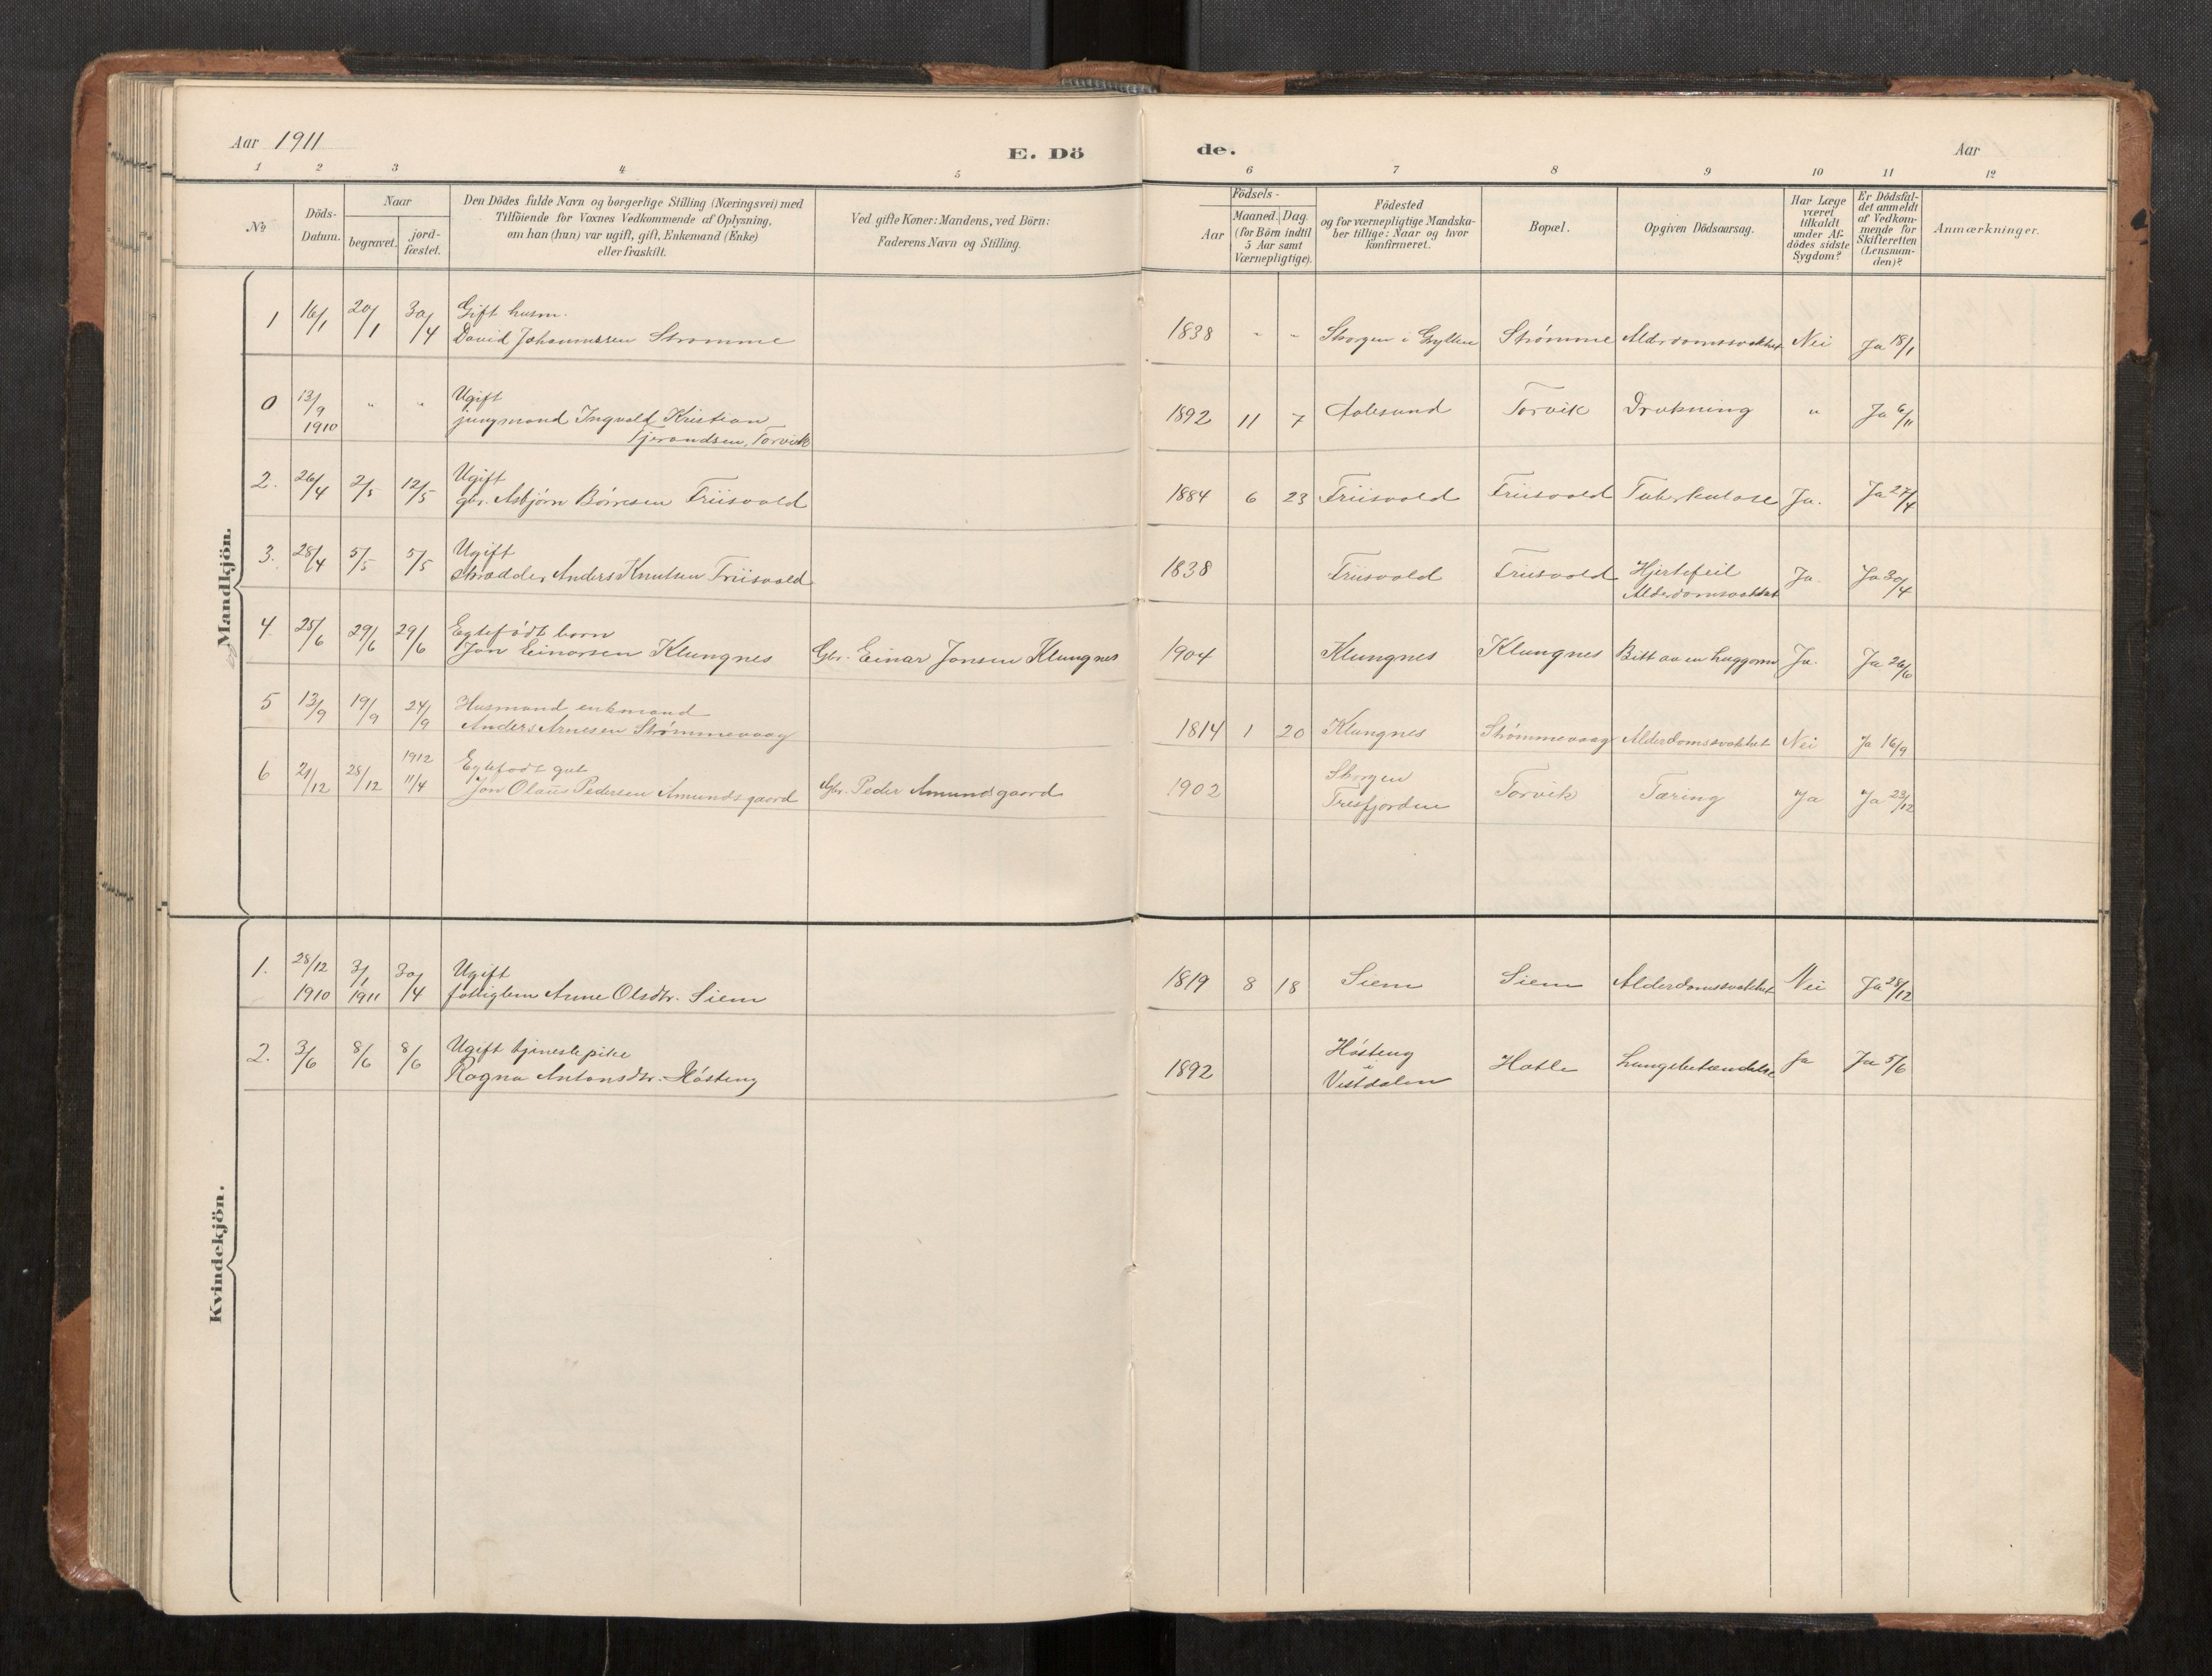 Aar 1911
E. Dö
de.
Aar
1 2 3 4 5 6 7 8 9 10 11 12
No
Döds-
Datum.
Naar
begravet.
jord-
fæstet.
Den Dödes fulde Navn og borgerlige Stilling (Næringsvei) med
Tilföiende for Voxnes Vedkommende af Oplysning,
om han (hun) var ugift, gift, Enkemand (Enke)
eller fraskilt.
Ved gifte Koner: Mandens, ved Börn:
Faderens Navn og Stilling.
Aar
Födsels-
Maaned. Dag.
(for Börn indtil
5 Aar samt
Værnepligtige).
Födested
og for værnepligtige Mandska-
ber tillige: Naar og hvor
konfirmeret.
Bopæl.
Opgiven Dödsaarsag.
Har Læge
været
tilkaldt
under Af-
dödes sidste
Sygdom?
Er Dödsfal-
det anmeldt
af Vedkom-
mende for
Skifteretten
(Lensman-
den)?
Anmærkninger.
Mandkjön.
1 16/1 20/1 30/4 Gift husm.
David Johannessen Strømme 1838 - - Skorgen i Gryllen Strømme Alderdomssvakhet Nei Ja 18/1
0 13/9 1910 " " Ugift
jungmand Ingvald Kristian
Tjerandsen, Torvik 1892 11 7 Aalesund Torvik Drukning " Ja 6/11
2. 26/4 2/5 12/5 Ugift
gbr. Asbjørn Børresen Friisvold 1884 6 23 Friisvold Friisvold Tuberkulose Ja. Ja 27/4
3. 28/4 5/5 5/5 Ugift
Skrædder Anders Knutsen Friisvold 1838 Friisvold Friisvold Hjertefeil
Alderdomssvakhet Ja. Ja 30/4
4 25/6 29/6 29/6 Egtefødt barn
Jon Einarsen Klungnes Gbr. Einar Jonsen Klungnes 1904 Klungnes Klungnes Bitt av en huggorm Ja. Ja 26/6
5 13/9 19/9 24/9 Husmand enkmand
Anders Arnesen Strømmevaag 1814 1 20 Klungnes Strømmevaag Alderdomssvakhet Nei Ja 16/9
6 21/12 28/12 1912 11/4 Egtefødt gut
Jon Olaus Pedersen Amundsgaard Gbr. Peder Amundsgaard 1902 Skorgen
Tresfjorden Torvik Tæring Ja Ja 23/12
Kvindekjön.
1. 28/12 1910 3/1 1911 30/4 Ugift
fattiglem Anne Olsdtr. Siem 1819 8 18 Siem Siem Alderdomssvakhet Nei Ja 28/12
2. 3/6 8/6 8/6 Ugift tjenestepike
Ragna Antonsdtr. Høsteng 1892 Høsteng
i
Vestdalen Hatle Lungebetændelse Ja Ja 5/6